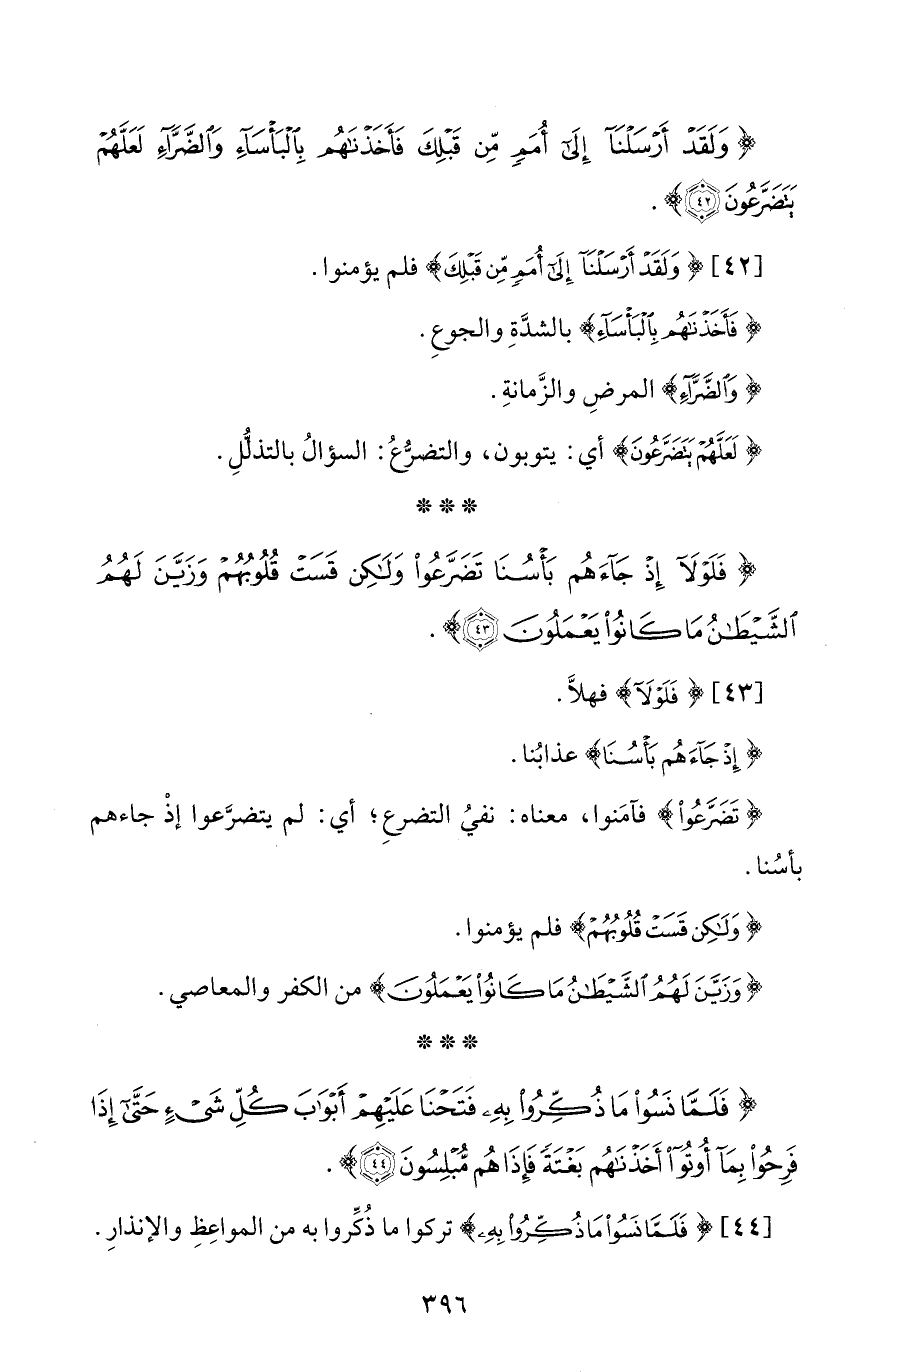 ﴿ وَلَقَدْ أَرْسَلْنَآ إِلَىٰٓ أُمَمٍ مِّن قَبْلِكَ فَأَخَذْنَٰهُم بِٱلْبَأْسَآءِ وَٱلضَّرَّآءِ لَعَلَّهُمْ
يَتَضَرَّعُونَ ٤٢ ﴾ .
[٤٢] ﴿ وَلَقَدْ أَرْسَلْنَآ إِلَىٰٓ أُمَمٍ مِّن قَبْلِكَ ﴾ فلم يؤمنوا .
﴿ فَأَخَذْنَٰهُم بِٱلْبَأْسَآءِ ﴾ بالشدَّةِ والجوعِ .
﴿ وَٱلضَّرَّآءِ ﴾ المرضِ والزَّمانةِ .
﴿ لَعَلَّهُمْ يَتَضَرَّعُونَ ﴾ أي : يتوبون ، والتضرُّعُ : السؤالُ بالتذلُّلِ .
* * *
﴿ فَلَوْلَآ إِذْ جَآءَهُم بَأْسُنَا تَضَرَّعُوا۟ وَلَٰكِن قَسَتْ قُلُوبُهُمْ وَزَيَّنَ لَهُمُ
ٱلشَّيْطَٰنُ مَا كَانُوا۟ يَعْمَلُونَ ٤٣ ﴾ .
[٤٣] ﴿ فَلَوْلَآ ﴾ فهلاَّ .
﴿ إِذْ جَآءَهُم بَأْسُنَا ﴾ عذابُنا .
﴿ تَضَرَّعُوا۟ ﴾ فآمَنوا ، معناه : نفيُ التضرعِ ؛ أي : لم يتضرَّعوا إذْ جاءهم
بأسُنا .
﴿ وَلَٰكِن قَسَتْ قُلُوبُهُمْ ﴾ فلم يؤمنوا .
﴿ وَزَيَّنَ لَهُمُ ٱلشَّيْطَٰنُ مَا كَانُوا۟ يَعْمَلُونَ ﴾ من الكفر والمعاصي .
* * *
﴿ فَلَمَّا نَسُوا۟ مَا ذُكِّرُوا۟ بِهِۦ فَتَحْنَا عَلَيْهِمْ أَبْوَٰبَ كُلِّ شَىْءٍ حَتَّىٰٓ إِذَا
فَرِحُوا۟ بِمَآ أُوتُوٓا۟ أَخَذْنَٰهُم بَغْتَةً فَإِذَا هُم مُّبْلِسُونَ ٤٤ ﴾ .
[٤٤] ﴿ فَلَمَّا نَسُوا۟ مَا ذُكِّرُوا۟ بِهِۦ ﴾ تركوا ما ذُكِّروا به من المواعِظِ والإنذارِ .
٣٩٦